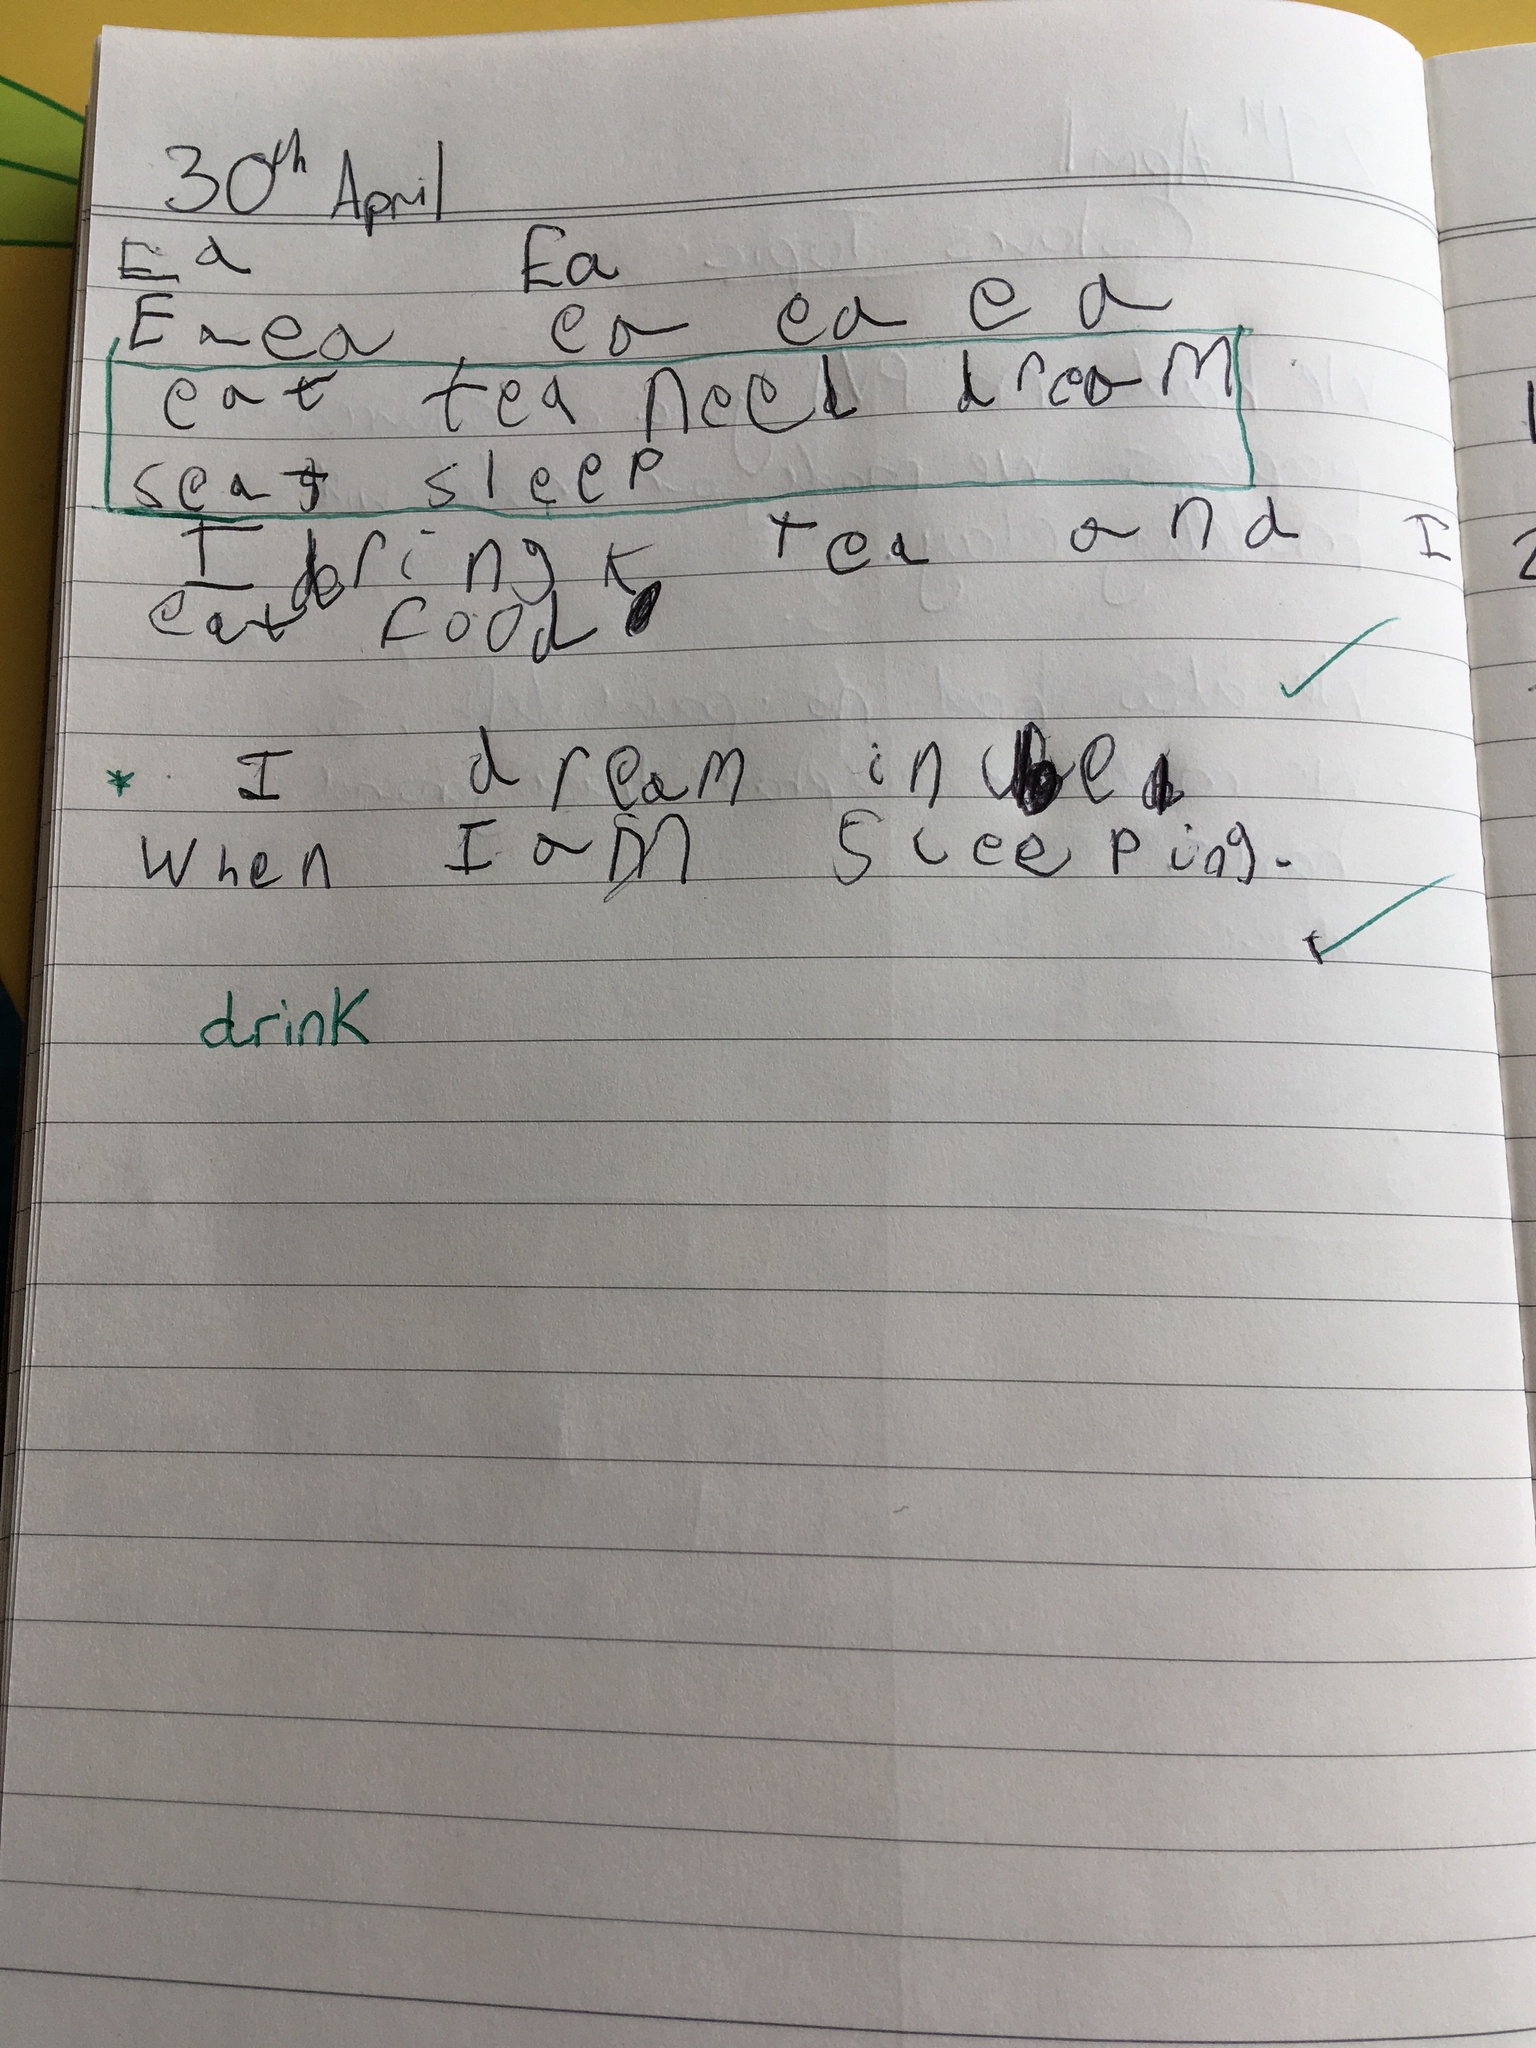 30th April
Ea Ea
Eaea ea ea ea
eat tea need dream
seat sleep
I dringk tea and I
eat food.
* I dream in bed
when I am sleeping.
drink